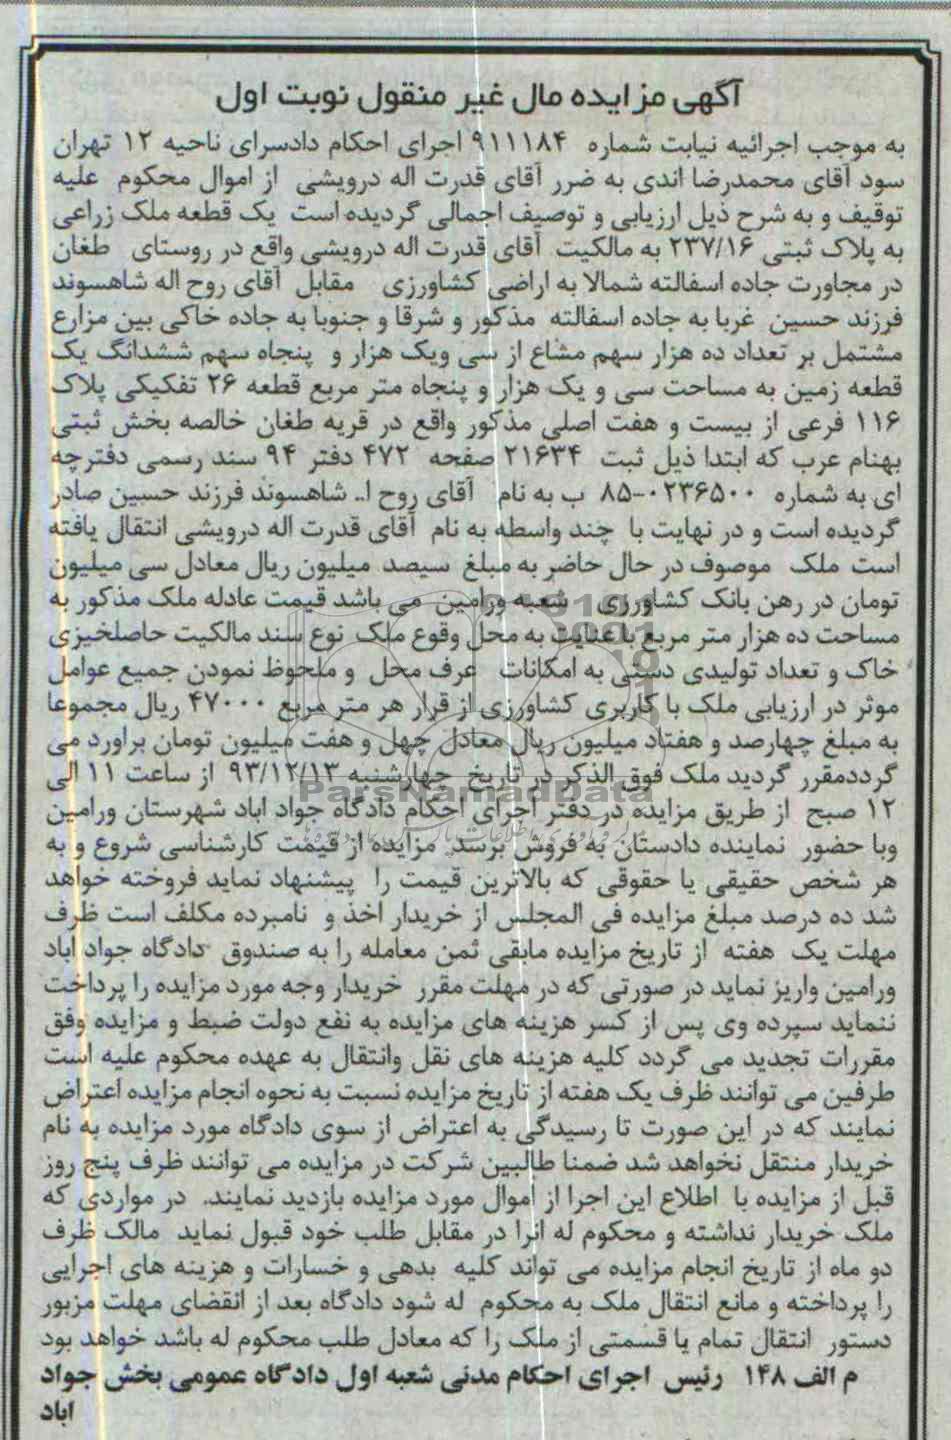 آگهی مزایده مال غیر منقول نوبت اول
به موجب اجرائیه نیابت شماره ۹۱۱۱۸۴ اجرای احکام دادسرای ناحیه ۱۲ تهران
سود آقای محمدرضا اندی به ضرر آقای قدرت اله درویشی از اموال محکوم علیه
توقیف و به شرح ذیل ارزیابی و توصیف اجمالی گردیده است یک قطعه ملک زراعی
به پلاک ثبتی ۲۳۷/۱۶ به مالکیت آقای قدرت اله درویشی واقع در روستای طغان
در مجاورت جاده اسفالته شمالا به اراضی کشاورزی مقابل آقای روح اله شاهسوند
فرزند حسین غربا به جاده اسفالته مذکور و شرقا و جنوبا به جاده خاکی بین مزارع
مشتمل بر تعداد ده هزار سهم مشاع از سی ویک هزار و پنجاه سهم ششدانگ یک
قطعه زمین به مساحت سی و یک هزار و پنجاه متر مربع قطعه ۲۶ تفکیکی پلاک
۱۱۶ فرعی از بیست و هفت اصلی مذکور واقع در قریه طغان خالصه بخش ثبتی
بهنام عرب که ابتدا ذیل ثبت ۲۱۶۳۴ صفحه ۴۷۲ دفتر ۹۴ سند رسمی دفترچه
ای به شماره ۰۲۳۶۵۰۰-۸۵ ب به نام آقای روح ا.. شاهسوند فرزند حسین صادر
گردیده است و در نهایت با چند واسطه به نام آقای قدرت اله درویشی انتقال یافته
است ملک موصوف در حال حاضر به مبلغ سیصد میلیون ریال معادل سی میلیون
تومان در رهن بانک کشاورزی شعبه ورامین می باشد قیمت عادله ملک مذکور به
مساحت ده هزار متر مربع با عنایت به محل وقوع ملک نوع سند مالکیت حاصلخیزی
خاک و تعداد تولیدی دستی به امکانات عرف محل و ملحوظ نمودن جمیع عوامل
موثر در ارزیابی ملک با کاربری کشاورزی از قرار هر متر مربع ۴۷۰۰۰ ریال مجموعا
به مبلغ چهارصد و هفتاد میلیون ریال معادل چهل و هفت میلیون تومان براورد می
گرددمقرر گردید ملک فوق الذکر در تاریخ چهارشنبه ۹۳/۱۲/۱۳ از ساعت ۱۱ الی
ParsNamadData
۱۲ صبح از طریق مزایده در دفتر اجرای احکام دادگاه جواد اباد شهرستان ورامین
وبا حضور نماینده دادستان به فروش برسد. مزایده از قیمت کارشناسی شروع و به
هر شخص حقیقی یا حقوقی که بالاترین قیمت را پیشنهاد نماید فروخته خواهد
شد ده درصد مبلغ مزایده فی المجلس از خریدار اخذ و نامبرده مکلف است ظرف
مهلت یک هفته از تاریخ مزایده مابقی ثمن معامله را به صندوق دادگاه جواد اباد
ورامین واریز نماید در صورتی که در مهلت مقرر خریدار وجه مورد مزایده را پرداخت
ننماید سپرده وی پس از کسر هزینه های مزایده به نفع دولت ضبط و مزایده وفق
مقررات تجدید می گردد کلیه هزینه های نقل وانتقال به عهده محکوم علیه است
طرفین می توانند ظرف یک هفته از تاریخ مزایده نسبت به نحوه انجام مزایده اعتراض
نمایند که در این صورت تا رسیدگی به اعتراض از سوی دادگاه مورد مزایده به نام
خریدار منتقل نخواهد شد ضمنا طالبین شرکت در مزایده می توانند ظرف پنج روز
قبل از مزایده با اطلاع این اجرا از اموال مورد مزایده بازدید نمایند. در مواردی که
ملک خریدار نداشته و محکوم له انرا در مقابل طلب خود قبول نماید مالک ظرف
دو ماه از تاریخ انجام مزایده می تواند کلیه بدهی و خسارات و هزینه های اجرایی
را پرداخته و مانع انتقال ملک به محکوم له شود دادگاه بعد از انقضای مهلت مزبور
دستور انتقال تمام یا قسمتی از ملک را که معادل طلب محکوم له باشد خواهد بود
م الف ۱۴۸ رئیس اجرای احکام مدنی شعبه اول دادگاه عمومی بخش جواد
اباد